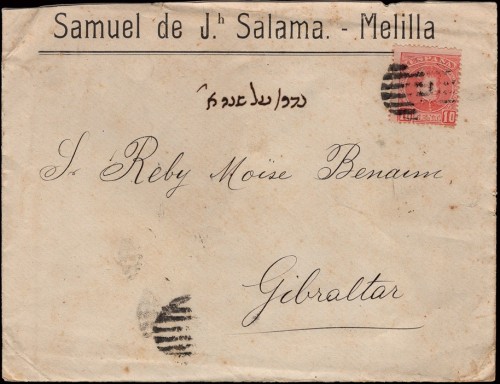 Samuel de J.h Salama. - Melilla
ESPAÑA
10
Sr Reby Moïse Benaim
Gibraltar